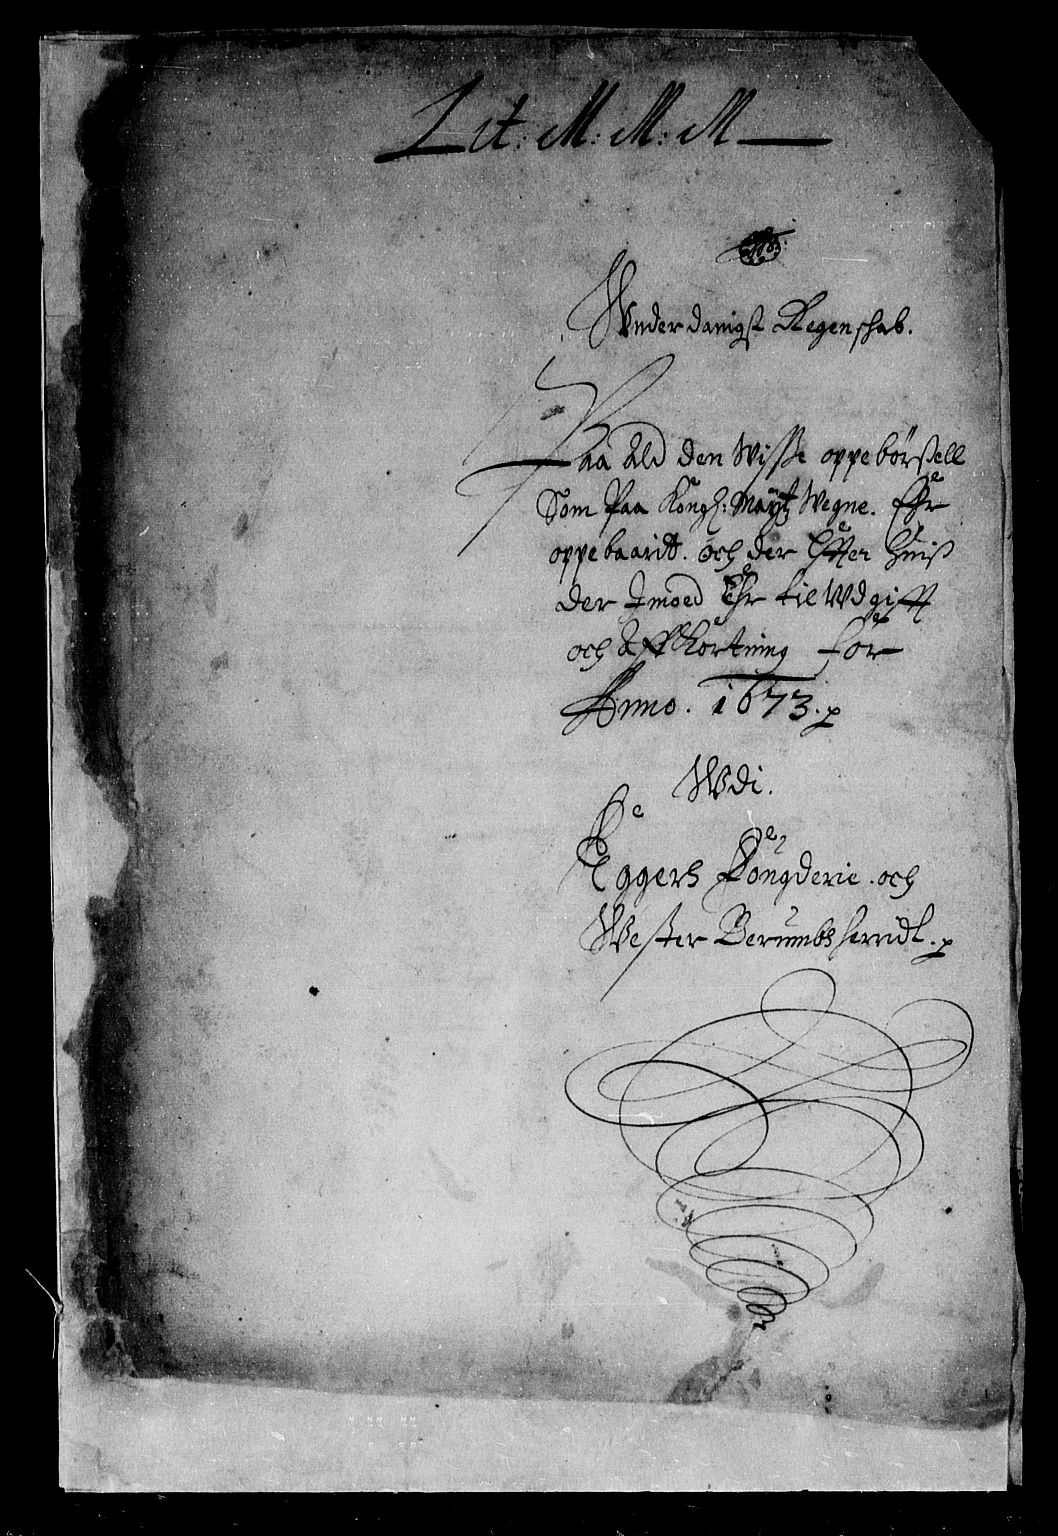 Lit: M: M: M
Underdanigst Regenschab.
Paa Ald den Wisse oppebørsell
Som Paa Kongl: Maytz Wegne. Ehr
oppebaaritt. och der Effter huis
der Jmoed Ehr til Wdgifft
och Affkortning for
Anno. 1673.
Wdi.
Eggers Fougderie och
Wester Berumbs herridt.